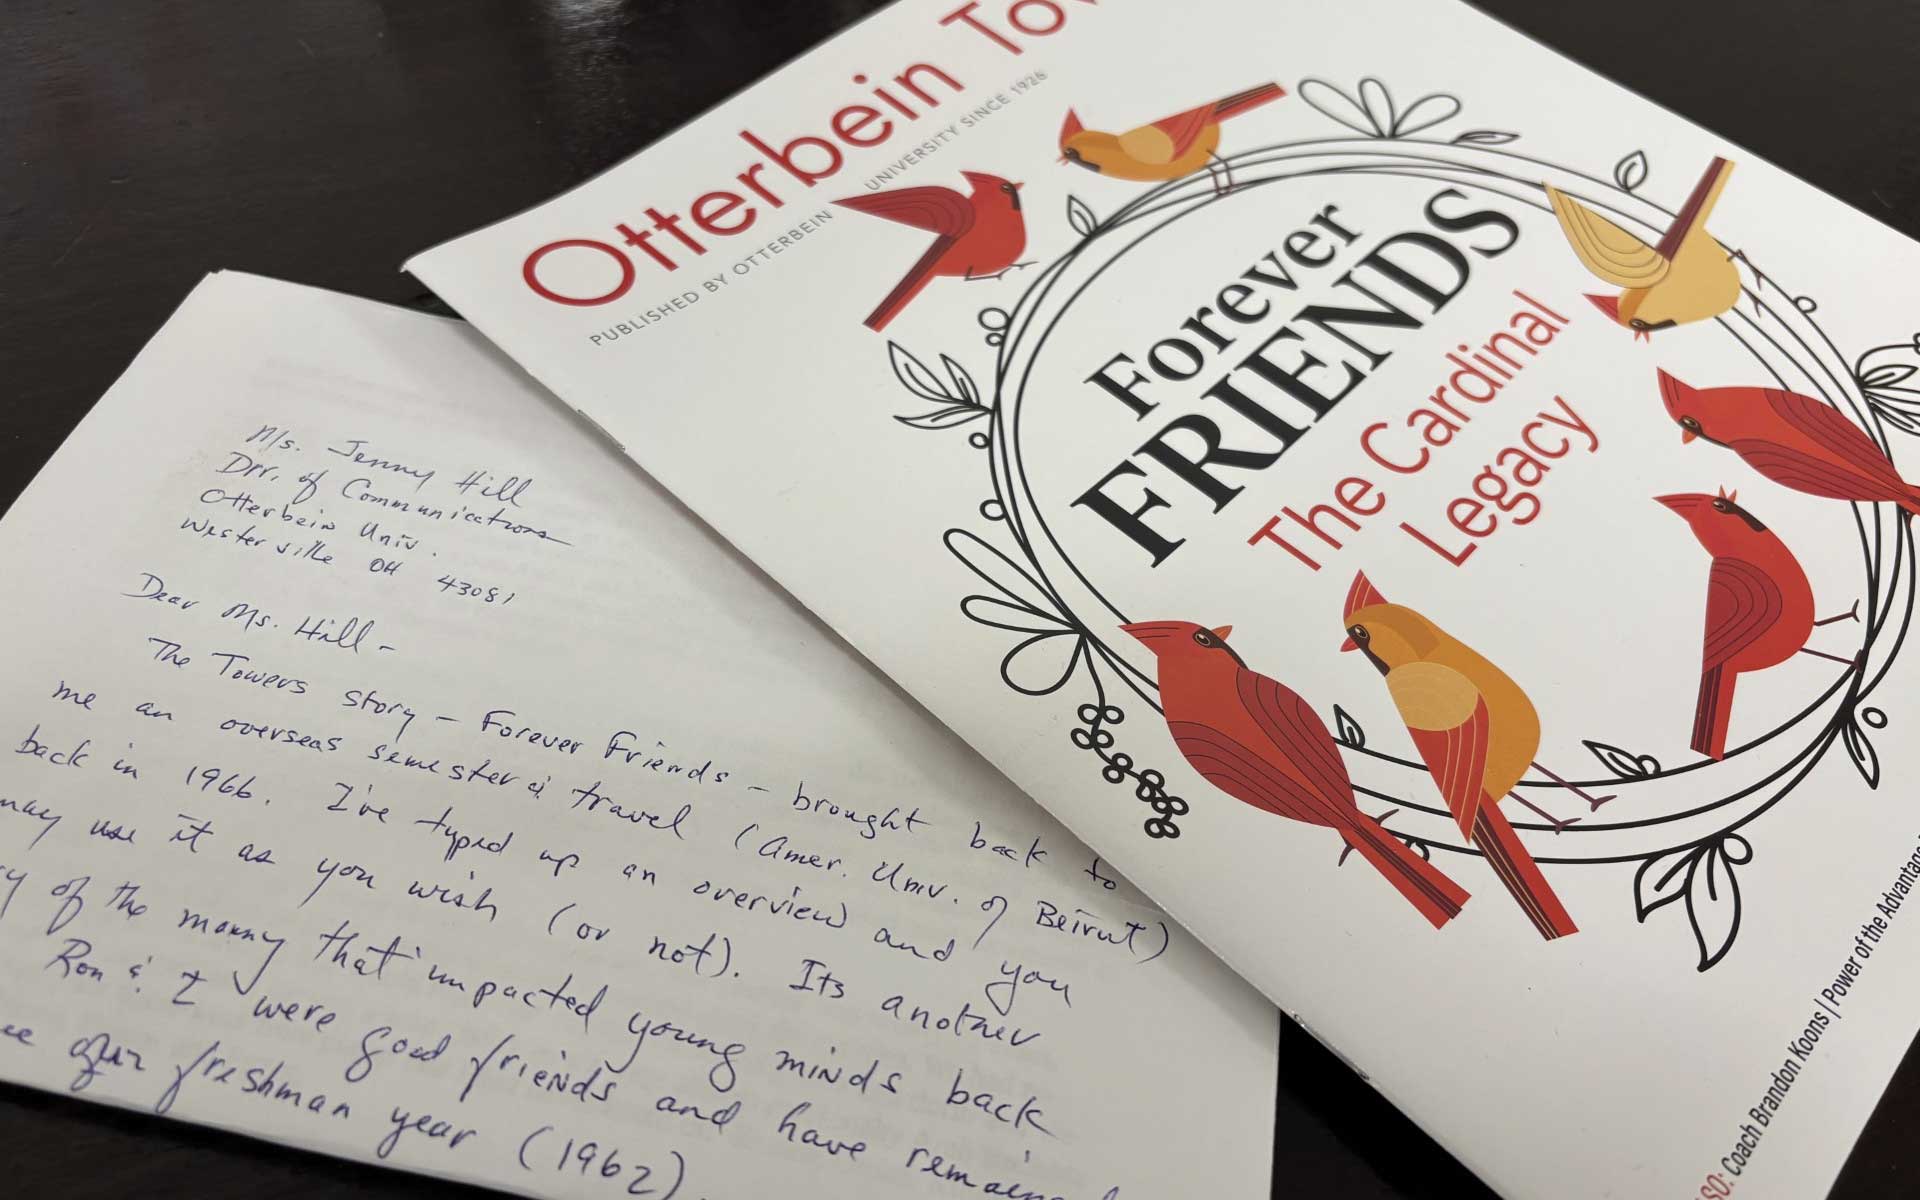 Otterbein To
PUBLISHED BY OTTERBEIN UNIVERSITY SINCE 1926
Forever
FRIENDS
The Cardinal
Legacy
SO: Coach Brandon Koons | Power of the Advantage
Ms. Jenny Hill
Dir. of Communications
Otterbein Univ.
Westerville OH 43081
Dear Ms. Hill -
The Towers story - Forever Friends - brought back to
me an overseas semester & travel (Amer. Univ. of Beirut)
back in 1966. I've typed up an overview and you
may use it as you wish (or not). Its another
of the many that impacted young minds back
Ron & I were good friends and have remain
our freshman year (1962).